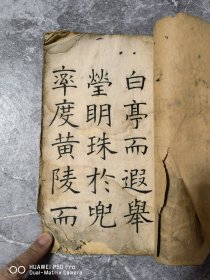 白亭而遐舉
瑩明珠於兜
率度黃陵而
HUAWEI P50 Pro
Dual-Matrix Camera